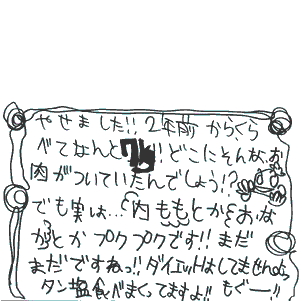 やせました!! 2年前からくら
べてなんと7kg!! どこにそんな
肉がついていたんでしょう!?
でも実は…内ももとかおな
かとかプクプクです!! まだ
まだですねっ!! ダイエットはしてませんのよ。
タン塩食べまくってますよ!! もぐー!!